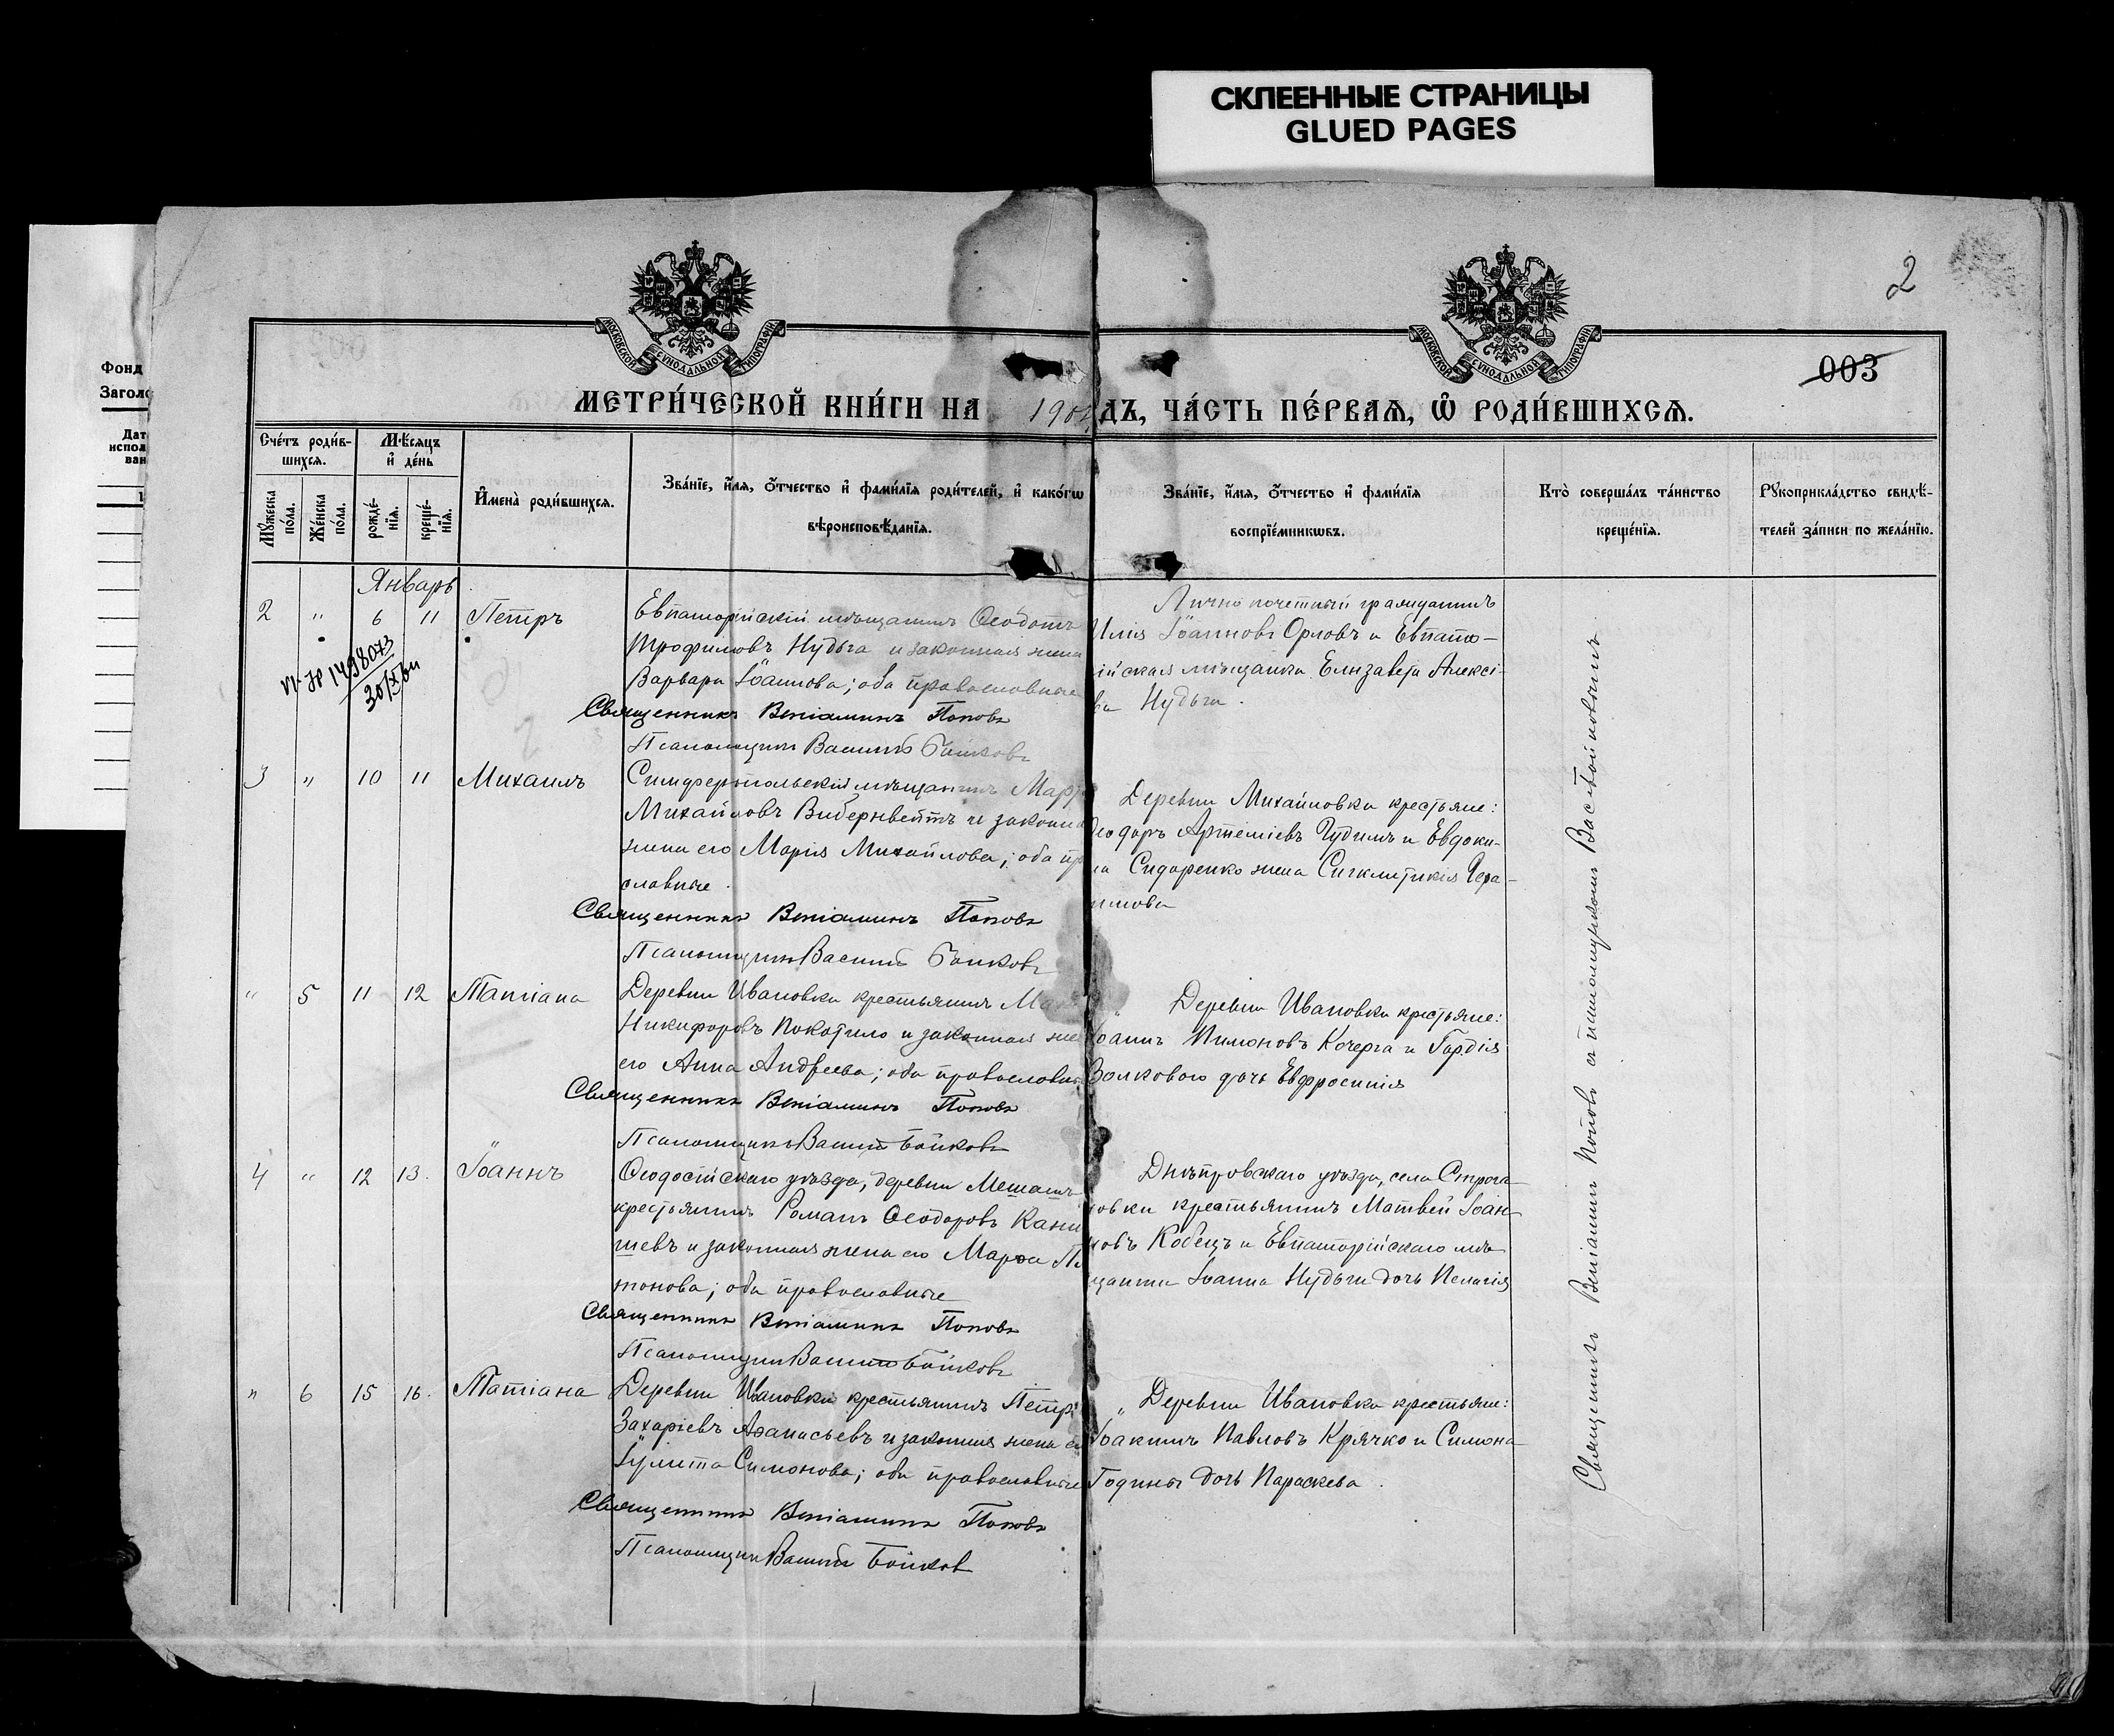 СКЛЕЕННЫЕ СТРАНИЦЫ
GLUED PAGES
Фонд
Заголо
Дат
испол
ван
1
2
003
МОСКОВСКОЙ СУНОДАЛЬНОЙ ТИПОГРАФІИ
МОСКОВСКОЙ СУНОДАЛЬНОЙ ТИПОГРАФІИ
МЕТРИ́ЧЕСКОЙ КНИ́ГИ НА 1902
ДЪ, ЧА́СТЬ ПЕ́РВАѦ, Ѡ҆ РОДИ́ВШИХСѦ.
Сче́тъ роди́в-
шихсѧ.
Мѣ́сѧцъ
и҆ де́нь
Мꙋ́жеска
по́ла.
Же́нска
по́ла.
рожде́-
нїѧ.
креще́-
нїѧ.
И҆мена̀ роди́вшихсѧ.
Зва́нїе, и҆́мѧ, ѻ҆́тчество и҆ фами́лїѧ роди́телей, и҆ како́гѡ
вѣроисповѣ́данїѧ.
Зва́нїе, и҆́мѧ, ѻ҆́тчество и҆ фами́лїѧ
воспрїе́мникѡвъ.
Кто̀ соверша́лъ та́инство
креще́нїѧ.
Рꙋкоприкла́дство свидѣ́-
телей за́писи по жела́нїю.
Январь
2 " 6 11 Петръ
Евпаторійскій мѣщанинъ Ѳеодотъ
Трофимовъ Нудьга и законная жена
Варвара Іоаннова; оба православные
Священникъ Веніаминъ Поповъ
Псаломщикъ Василій Бойковъ
Лично почетный гражданинъ
Илія Іоанновъ Орловъ и Евпато-
ійская мѣщанка Елизавета Алексі-
ва Нудьга.
1498073
3 " 10 11 Михаилъ
Симферопольскій мѣщанинъ
Михайловъ Вибернветъ и законна
жена его Марія Михайлова; оба пр
славные.
Священникъ Веніаминъ Поповъ
Псаломщикъ Василій Бойковъ
Деревни Михайловки крестьяне:
еодоръ Артеміевъ Чудимъ и Евдоки-
ма Сидоренко жена Сигклитикія Гера-
имова
" 5 11 12 Татіана
Деревни Ивановки крестьянинъ
Никифоровъ Покотило и законная же
его Анна Андреева; оба православны
Священникъ Веніаминъ Поповъ
Псаломщикъ Василій Бойковъ
Деревни Ивановки крестьяне:
Іоаннъ Пимоновъ Кочерга и Гордія
Волкового дочь Евфросинія
4 " 12 13. Іоаннъ
Ѳеодосійскаго уѣзда, деревни
крестьянинъ Романъ Ѳеодоровъ Кани
шевъ и законная жена его Марѳа Пл
тонова; оба православные
Священникъ Веніаминъ Поповъ
Псаломщикъ Василій Бойковъ
Днѣпровскаго уѣзда, села Строга-
новки крестьянинъ Матвей Іоан-
новъ Кобецъ и Евпаторійскаго мѣ-
щанина Іоанна Нудьги дочь Пелагія
" 6 15 16. Татіана
Деревни Ивановки крестьянинъ Петръ
Захаріевъ Аѳанасьевъ и законная жена ег
Іулитта Симонова; оба православные
Священникъ Веніаминъ Поповъ
Псаломщикъ Василій Бойков
" Деревни Ивановки крестьяне:
Іоакимъ Павловъ Крячко и Симона
Годины дочь Параскева.
Священникъ Веніаминъ Поповъ съ псаломщикомъ Вас. Бойковымъ